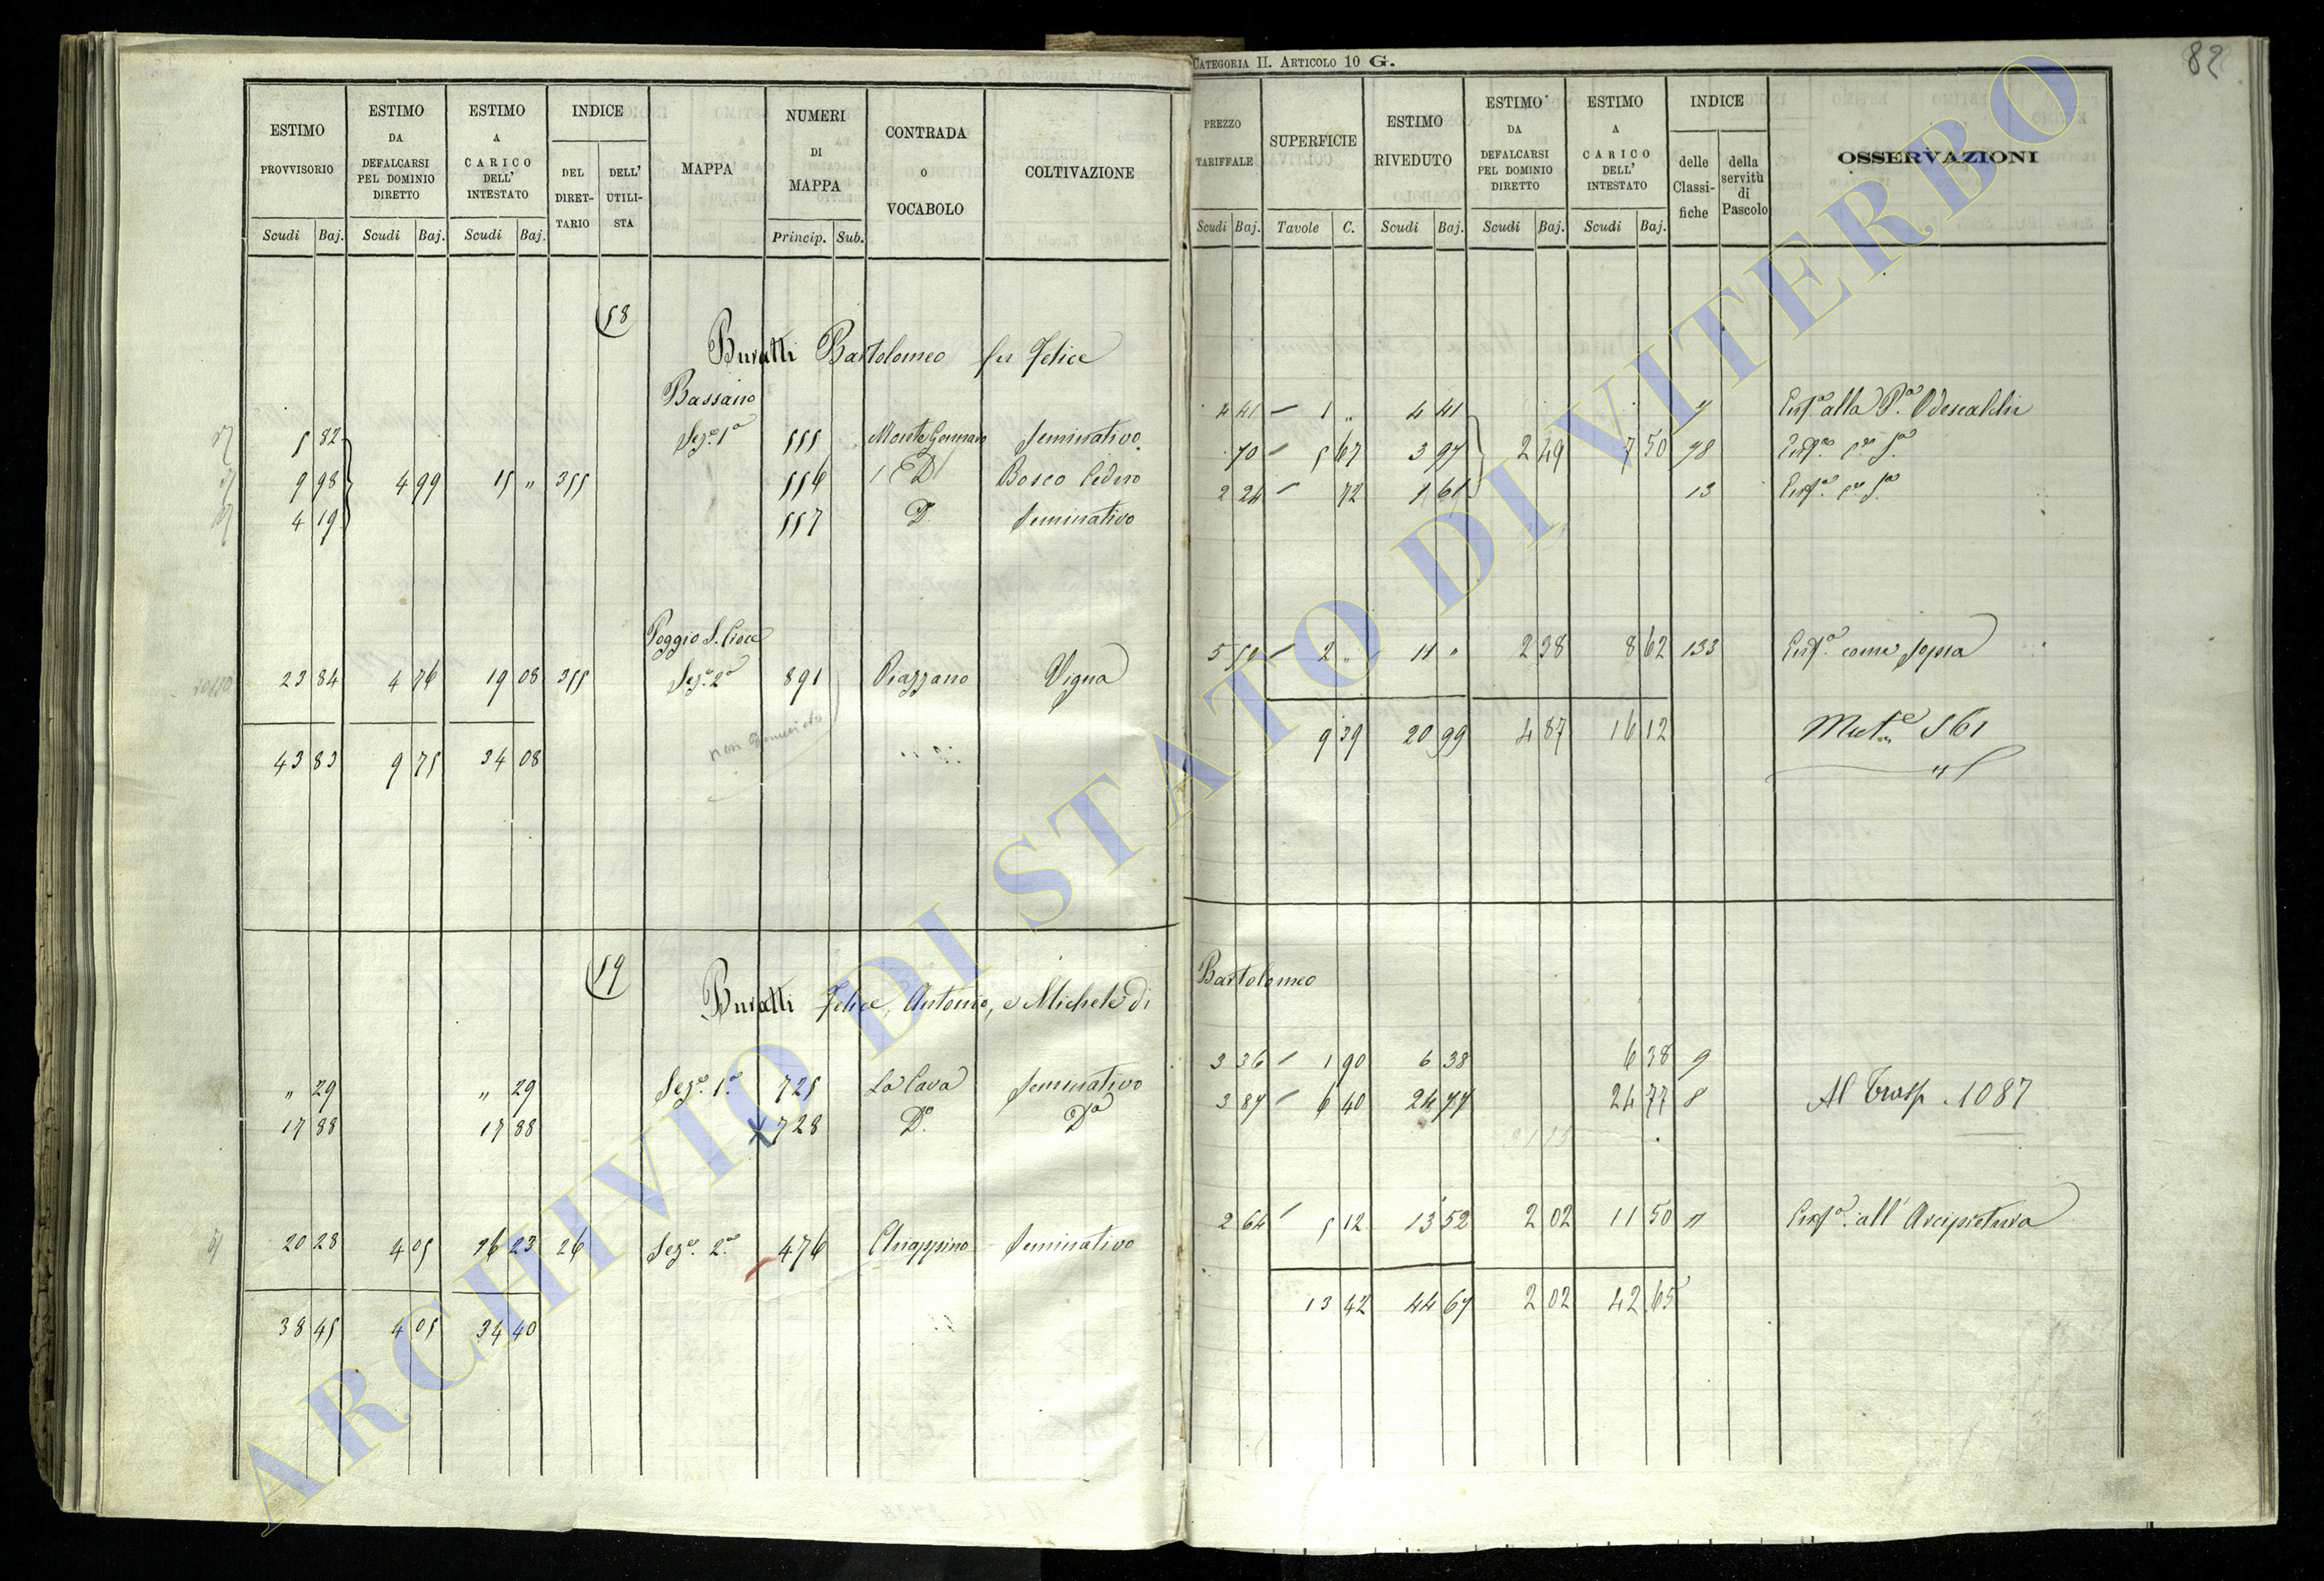 CATEGORIA II. ARTICOLO 10 G.
82
ESTIMO PROVVISORIO
ESTIMO DA DEFALCARSI PEL DOMINIO DIRETTO
ESTIMO A CARICO DELL' INTESTATO
INDICE
DEL DIRET-TARIO
DELL' UTILI-STA
MAPPA
NUMERI DI MAPPA
CONTRADA O VOCABOLO
COLTIVAZIONE
Scudi Baj. Scudi Baj. Scudi Baj. Princip. Sub.
PREZZO TARIFFALE
SUPERFICIE
ESTIMO RIVEDUTO
ESTIMO DA DEFALCARSI PEL DOMINIO DIRETTO
ESTIMO A CARICO DELL' INTESTATO
INDICE
delle Classi-fiche
della servitù di Pascolo
OSSERVAZIONI
Scudi Baj. Tavole C. Scudi Baj. Scudi Baj. Scudi Baj.
58
Buratti Bartolomeo fu Felice
Bassano
5 82 Sez.e 1a 555 Monte Gennaro Seminativo
9 98 4 99 15 " 355 556 D Bosco Ceduo
4 19 557 D. Seminativo
Poggio S. Croce
23 84 4 76 19 08 355 Sez.e 2a 891 Piazzano Vigna
43 83 9 75 34 08
4 41 1 " 4 41 Enf.a alla P.a Odescalchi
70 5 67 3 97 2 49 7 50 98
2 24 72 1 61 13
5 50 2 " 11 " 2 38 8 62 133 Enf.a come sopra
9 39 20 99 4 87 16 12 561
59
Buratti Felice, Antonio, e Michele di Bartolomeo
" 29 " 29 Sez.e 1.a 725 La Cava Seminativo
17 88 17 88 728 D.o D.o
20 28 4 05 16 23 26 Sez.e 2.a 476 Chiappino Seminativo
38 45 4 05 34 40
3 36 1 90 6 38 6 38 9
3 87 6 40 24 77 24 77 8 Al Trasp. 1087
2 64 5 12 13 52 2 02 11 50 11 Enf.a all' Arcipretura
13 42 44 67 2 02 42 65
ARCHIVIO DI STATO DI VITERBO